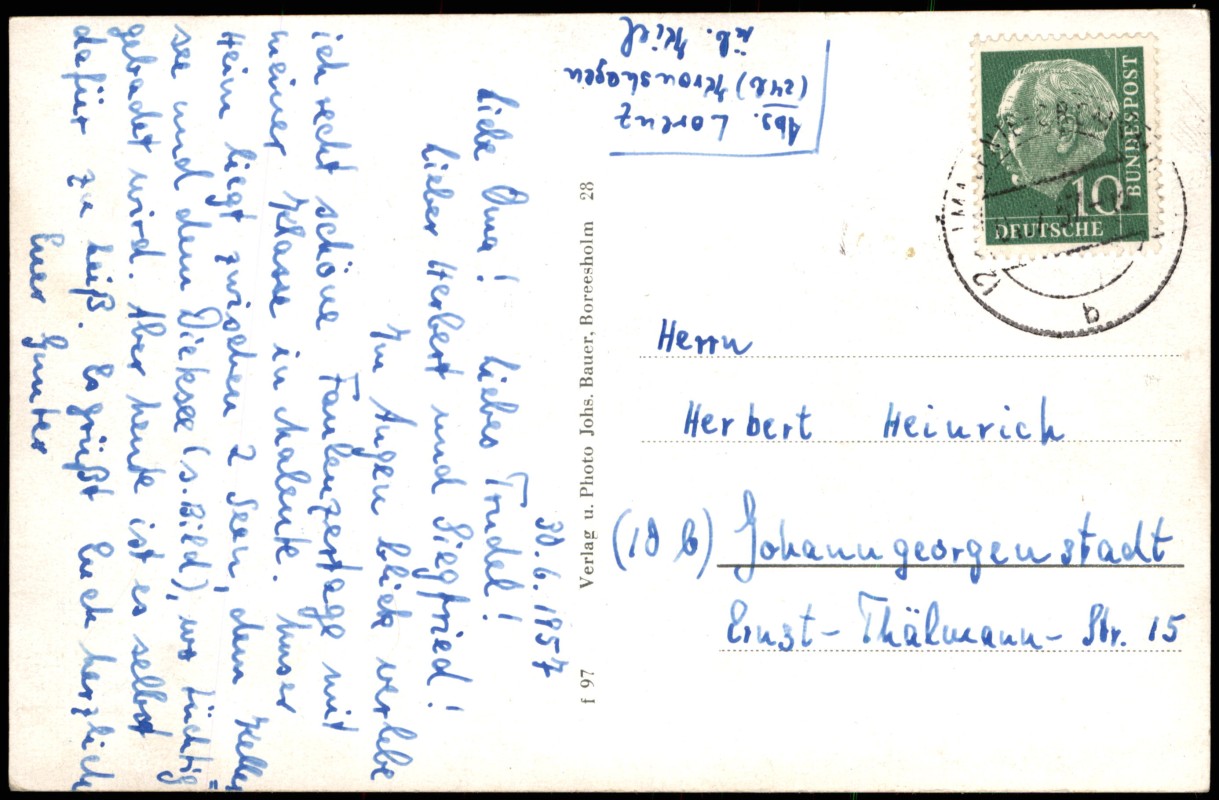 30.6.1957
Liebe Oma! Liebes Trudel!
Lieber Herbert und Siegfried!
Im Augenblick verlebe
ich recht schöne Faulenzertage mit
meiner Klasse in Malente. Unser
Heim liegt zwischen 2 Seen, dem Keller=
see und dem Dieksee (s. Bild), wo tüchtig
gebadet wird. Aber heute ist es selbst
dafür zu heiß. Es grüßt Euch herzlich
Euer Gunter
f 97 Verlag u. Photo Johs. Bauer, Boreesholm 28
Abs. Lorenz
(24b) Kronshagen
üb. Kiel
DEUTSCHE
BUNDESPOST
10
a
Herrn
Herbert Heinrich
(10 b) Johanngeorgenstadt
Ernst-Thälmann-Str. 15